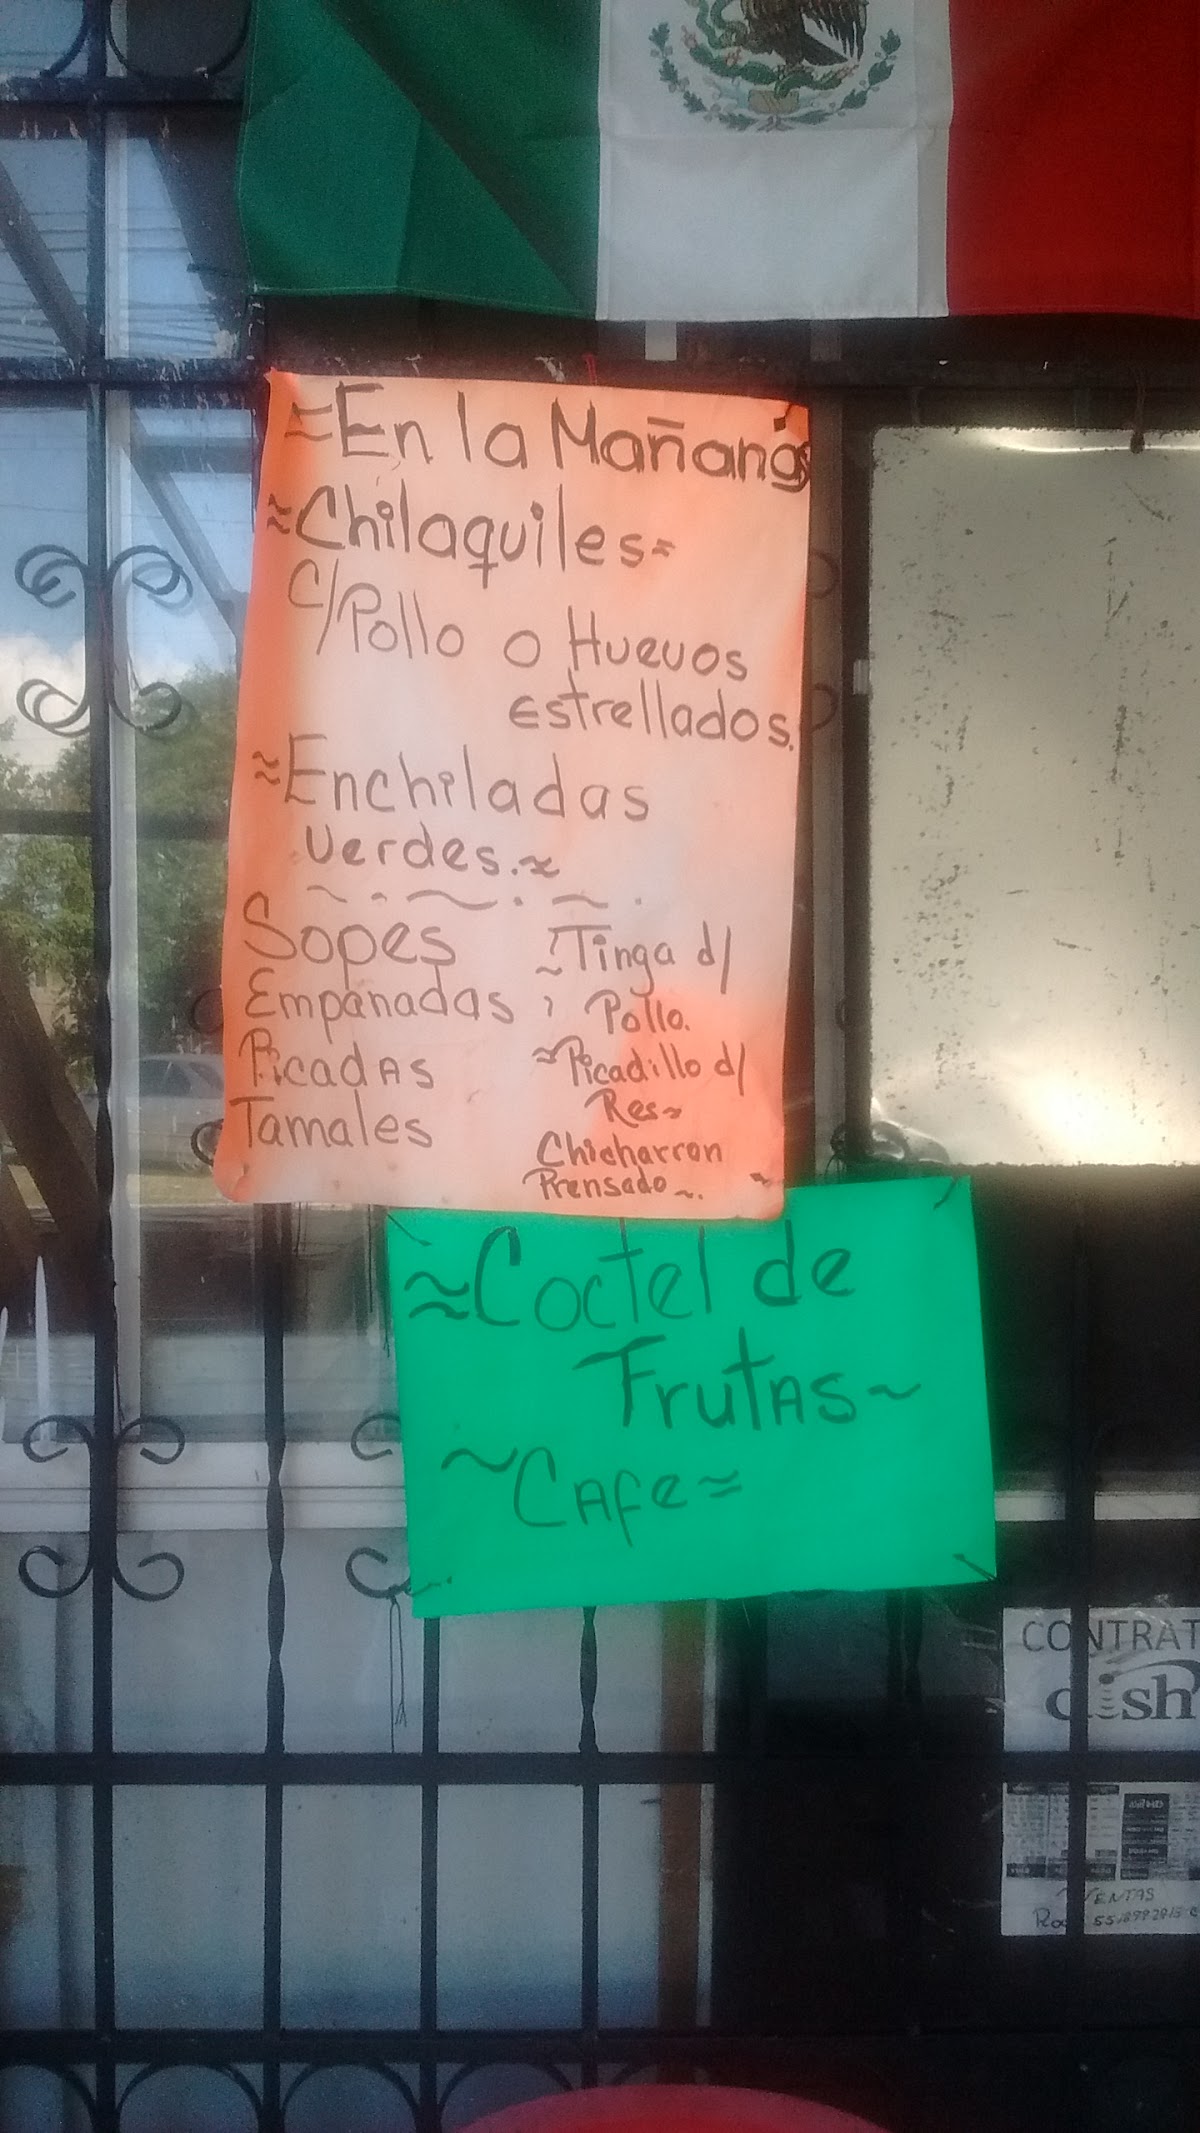 ≈En la Mañana
≈Chilaquiles≈
C/Pollo o Huevos
Estrellados.
≈Enchiladas
Verdes.≈
Sopes
Empanadas
Picadas
Tamales
~Tinga d/
Pollo.
≈Picadillo d/
Res~
Chicharron
Prensado~.
≈Coctel de
Frutas~
~Cafe≈
CONTRAT
dish
VENTAS